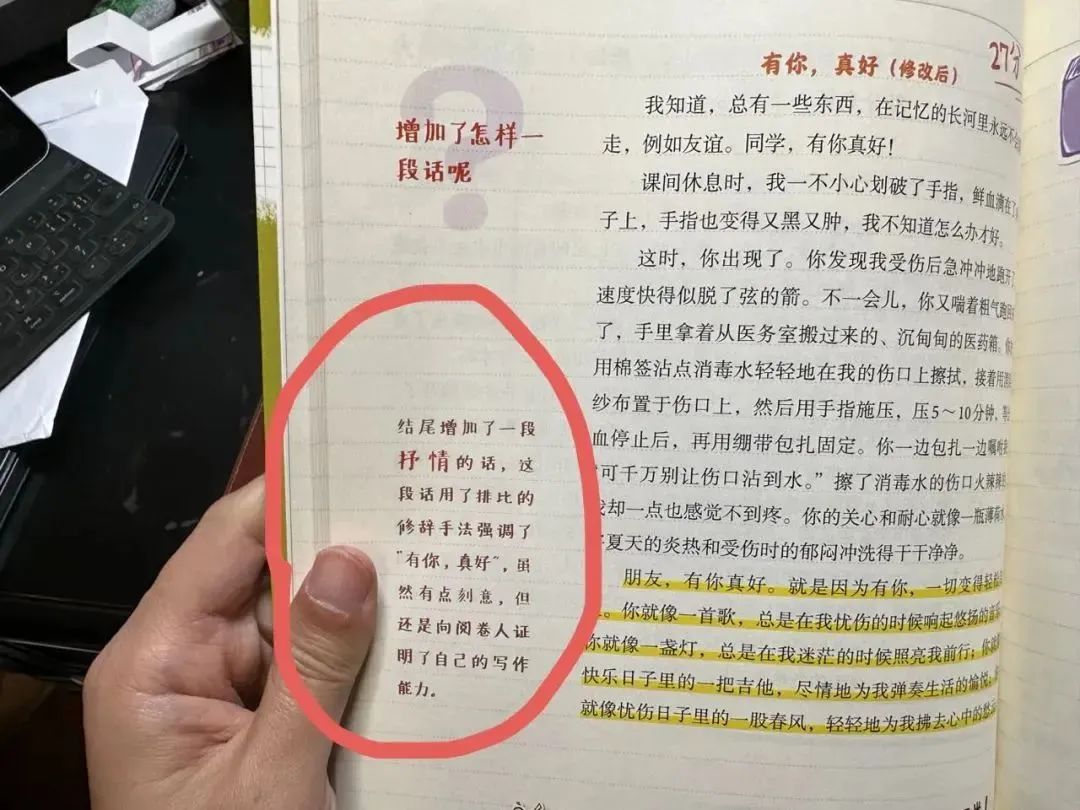 增加了怎样一
段话呢
结尾增加了一段
抒情的话，这
段话用了排比的
修辞手法强调了
“有你，真好”，虽
然有点刻意，但
还是向阅卷人证
明了自己的写作
能力。
有你，真好（修改后）
27分
我知道，总有一些东西，在记忆的长河里永远不会
走，例如友谊。同学，有你真好！
课间休息时，我一不小心划破了手指，鲜血滴在了
子上，手指也变得又黑又肿，我不知道怎么办才好。
这时，你出现了。你发现我受伤后急冲冲地跑开了
速度快得似脱了弦的箭。不一会儿，你又喘着粗气跑回
了，手里拿着从医务室搬过来的、沉甸甸的医药箱。你
用棉签沾点消毒水轻轻地在我的伤口上擦拭，接着用
纱布置于伤口上，然后用手指施压，压5～10分钟，等
血停止后，再用绷带包扎固定。你一边包扎一边嘱咐
可千万别让伤口沾到水。”擦了消毒水的伤口火辣辣
我却一点也感觉不到疼。你的关心和耐心就像一瓶薄荷
夏天的炎热和受伤时的郁闷冲洗得干干净净。
朋友，有你真好。就是因为有你，一切变得轻松
。你就像一首歌，总是在我忧伤的时候响起悠扬的音
你就像一盏灯，总是在我迷茫的时候照亮我前行；你就
快乐日子里的一把吉他，尽情地为我弹奏生活的愉悦
就像忧伤日子里的一股春风，轻轻地为我拂去心中的愁